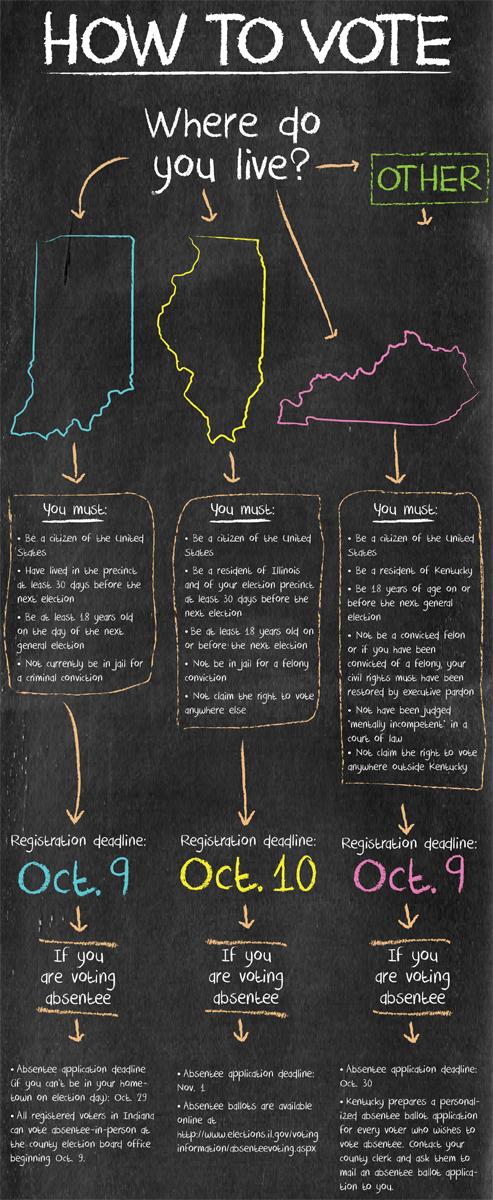 HOW TO VOTE
Where do
you live?
OTHER
You must:
• Be a citizen of the United
States
• Have lived in the precinct
at least 30 days before the
next election
• Be at least 18 years old
on the day of the next
general election
• Not currently be in jail for
a criminal conviction
You must:
• Be a citizen of the United
States
• Be a resident of Illinois
and of your election precinct
at least 30 days before the
next election
• Be at least 18 years old on
or before the next election
• Not be in jail for a felony
conviction
• Not claim the right to vote
anywhere else
You must:
• Be a citizen of the United
States
• Be a resident of Kentucky
• Be 18 years of age on or
before the next general
election
• Not be a convicted felon
or if you have been
convicted of a felony, your
civil rights must have been
restored by executive pardon
• Not have been judged
"mentally incompetent" in a
court of law
• Not claim the right to vote
anywhere outside Kentucky
Registration deadline:
Oct. 9
Registration deadline:
Oct. 10
Registration deadline:
Oct. 9
If you
are voting
absentee
If you
are voting
absentee
If you
are voting
absentee
• Absentee application deadline
(if you can't be in your home-
town on election day): Oct. 29
• All registered voters in Indiana
can vote absentee-in-person at
the county election board office
beginning Oct. 9.
• Absentee application deadline:
Nov. 1
• Absentee ballots are available
online at
http://www.elections.il.gov/voting
information/absenteevoting.aspx
• Absentee application deadline:
Oct. 30
• Kentucky prepares a personal-
ized absentee ballot application
for every voter who wishes to
vote absentee. Contact your
county clerk and ask them to
mail an absentee ballot applica-
tion to you.